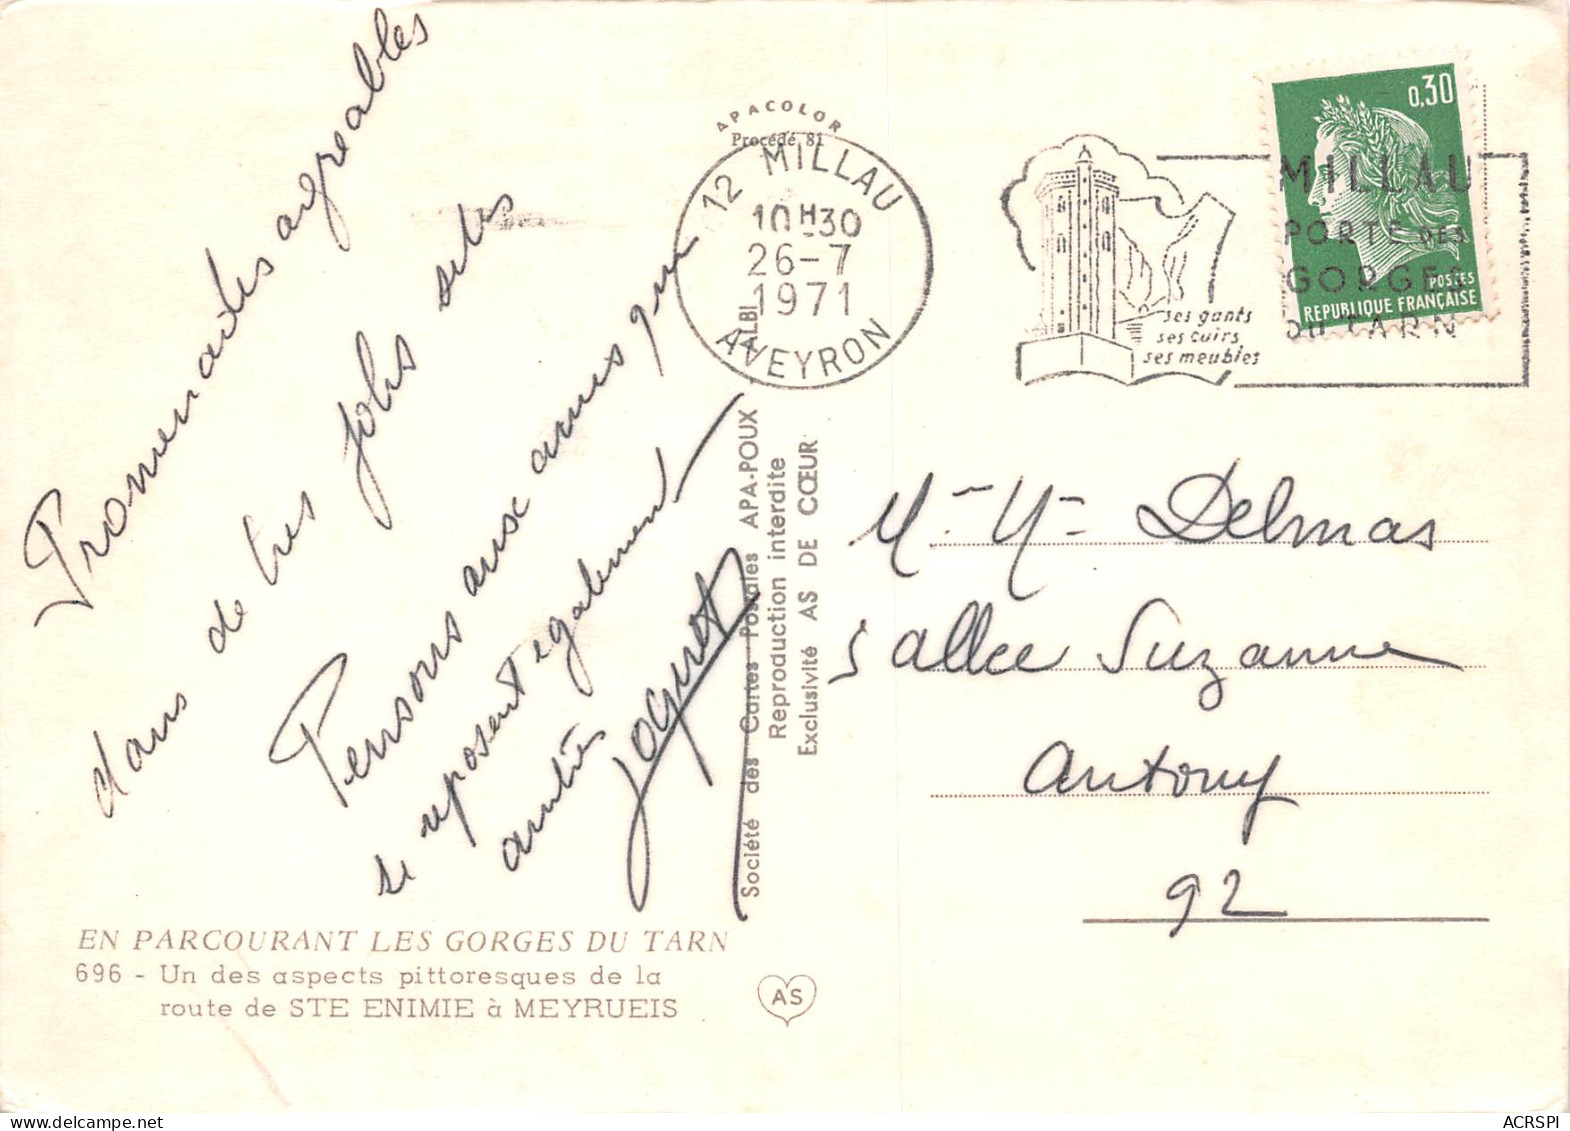 Promenades agréables
dans de très jolis sites
Pensons aux amis qui
se reposent également
amitiés
APACOLOR
Procédé 81
12 MILLAU
10H30
26-7
1971
AVEYRON
ses gants
ses cuirs
ses meubles
MILLAU
PORTE DES
GORGES
DU TARN
0,30
POSTES
REPUBLIQUE FRANÇAISE
Société des Cartes Postales APA-POUX ALBI
Reproduction interdite
Exclusivité AS DE CŒUR
M. Me Delmas
5 allée Suzanne
Antony
92
EN PARCOURANT LES GORGES DU TARN
696 - Un des aspects pittoresques de la
route de STE ENIMIE à MEYRUEIS
AS
ACRSPI